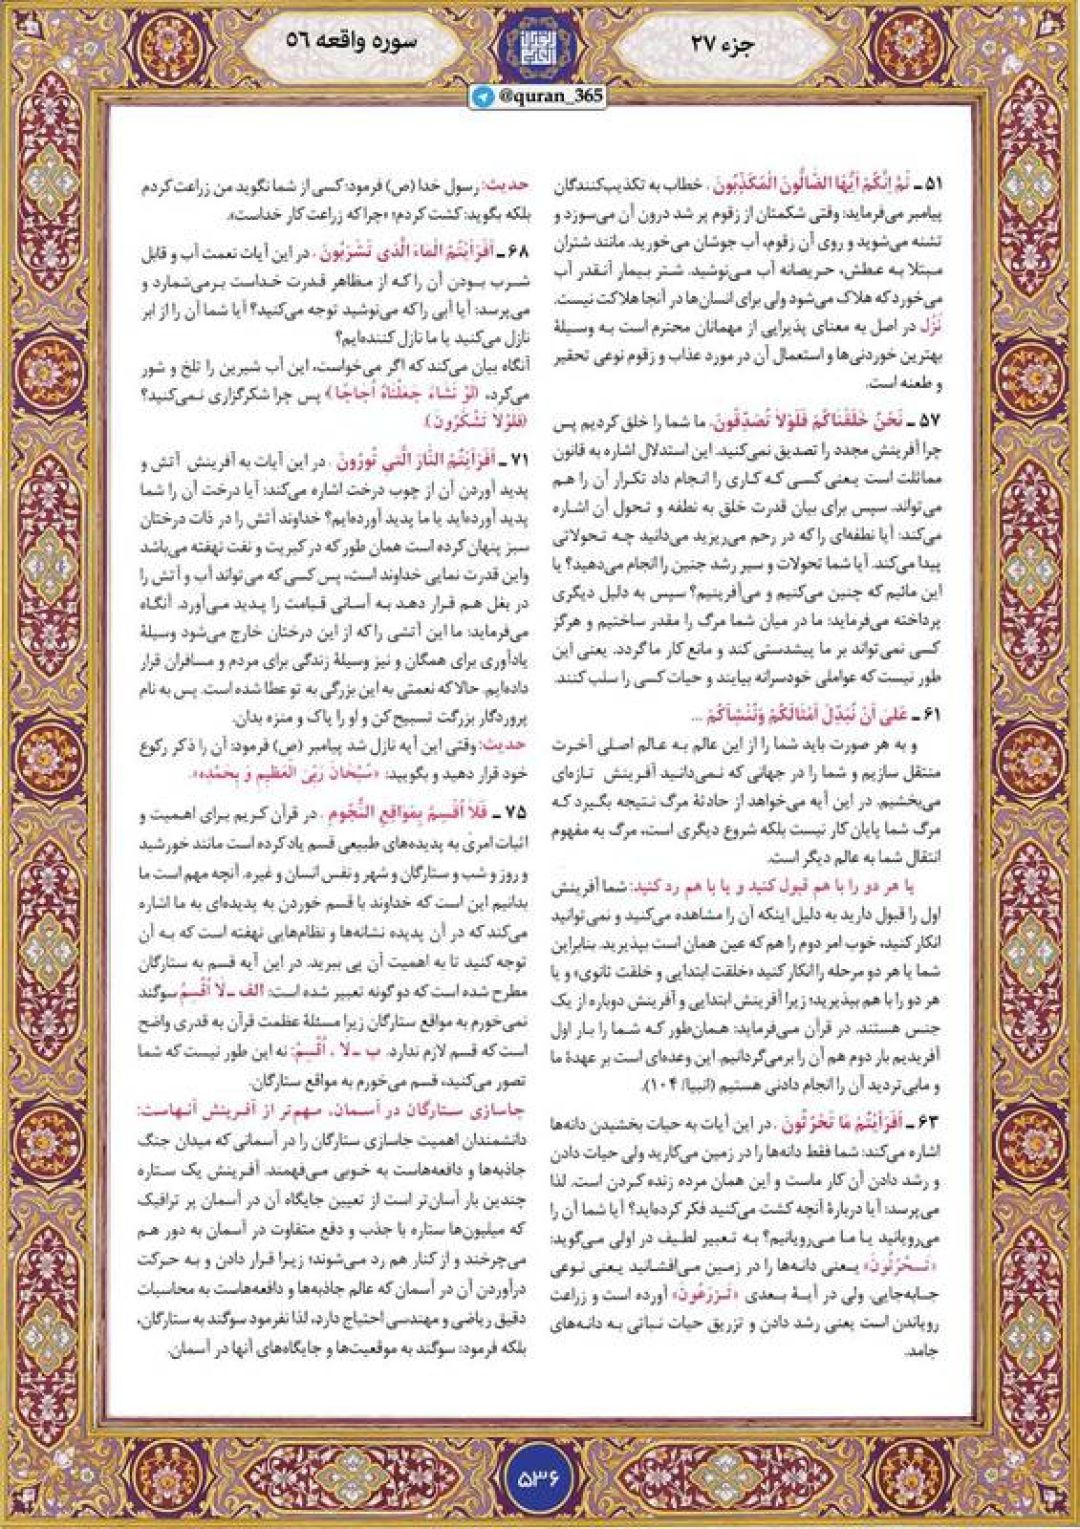 جزء ۲۷
سوره واقعه ۵۶
@quran_365
۵۱ ـ ثُمَّ اِنَّكُمْ اَيُّهَا الضَّالُّونَ الْمُكَذِّبُونَ . خطاب به تکذیب‌کنندگان
پیامبر می‌فرماید: وقتی شکمتان از زقوم پر شد درون آن می‌سوزد و
تشنه می‌شوید و روی آن زقوم، آب جوشان می‌خورید. مانند شتران
مبتلا به عطش، حریصانه آب می‌نوشید. شتر بیمار آنقدر آب
می‌خورد که هلاک می‌شود ولی برای انسان‌ها در آنجا هلاکت نیست.
نُزُل در اصل به معنای پذیرایی از مهمانان محترم است به وسیلهٔ
بهترین خوردنی‌ها و استعمال آن در مورد عذاب و زقوم نوعی تحقیر
و طعنه است.
۵۷ ـ نَحْنُ خَلَقْنَاكُمْ فَلَوْلَا تُصَدِّقُونَ. ما شما را خلق کردیم پس
چرا آفرینش مجدد را تصدیق نمی‌کنید. این استدلال اشاره به قانون
مماثلت است یعنی کسی که کاری را انجام داد تکرار آن را هم
می‌تواند. سپس برای بیان قدرت خلق به نطفه و تحول آن اشاره
می‌کند: آیا نطفه‌ای را که در رحم می‌ریزید می‌دانید چه تحولاتی
پیدا می‌کند. آیا شما تحولات و سیر رشد جنین را انجام می‌دهید؟ یا
این مائیم که چنین می‌کنیم و می‌آفرینیم؟ سپس به دلیل دیگری
پرداخته می‌فرماید: ما در میان شما مرگ را مقدر ساختیم و هرگز
کسی نمی‌تواند بر ما پیشدستی کند و مانع کار ما گردد. یعنی این
طور نیست که عواملی خودسرانه بیایند و حیات کسی را سلب کنند.
۶۱ ـ عَلَى اَنْ نُبَدِّلَ اَمْثَالَكُمْ وَنُنْشِأَكُمْ ...
و به هر صورت باید شما را از این عالم به عالم اصلی آخرت
منتقل سازیم و شما را در جهانی که نمی‌دانید آفرینش تازه‌ای
می‌بخشیم. در این آیه می‌خواهد از حادثهٔ مرگ نتیجه بگیرد که
مرگ شما پایان کار نیست بلکه شروع دیگری است، مرگ به مفهوم
انتقال شما به عالم دیگر است.
یا هر دو را با هم قبول کنید و یا با هم رد کنید: شما آفرینش
اول را قبول دارید به دلیل اینکه آن را مشاهده می‌کنید و نمی‌توانید
انکار کنید، خوب امر دوم را هم که عین همان است بپذیرید. بنابراین
شما یا هر دو مرحله را انکار کنید «خلقت ابتدایی و خلقت ثانوی» و یا
هر دو را با هم بپذیرید؛ زیرا آفرینش ابتدایی و آفرینش دوباره از یک
جنس هستند. در قرآن می‌فرماید: همان‌طور که شما را بار اول
آفریدیم بار دوم هم آن را برمی‌گردانیم. این وعده‌ای است بر عهدهٔ ما
و ما بی‌تردید آن را انجام دادنی هستیم (انبیا/ ۱۰۴).
۶۳ ـ اَفَرَاَيْتُمْ مَا تَحْرُثُونَ . در این آیات به حیات بخشیدن دانه‌ها
اشاره می‌کند: شما فقط دانه‌ها را در زمین می‌کارید ولی حیات دادن
و رشد دادن آن کار ماست و این همان مرده زنده کردن است. لذا
می‌پرسد: آیا دربارهٔ آنچه کشت می‌کنید فکر کرده‌اید؟ آیا شما آن را
می‌رویانید یا ما می‌رویانیم؟ به تعبیر لطیف در اولی می‌گوید:
«تَحْرُثُونَ» یعنی دانه‌ها را در زمین می‌افشانید یعنی نوعی
جابه‌جایی. ولی در آیهٔ بعدی «تَزْرَعُونَ» آورده است و زراعت
رویاندن است یعنی رشد دادن و تزریق حیات نباتی به دانه‌های
جامد.
حدیث: رسول خدا (ص) فرمود: کسی از شما نگوید من زراعت کردم
بلکه بگوید: کشت کردم؛ «چرا که زراعت کار خداست».
۶۸ ـ اَفَرَاَيْتُمُ الْمَاءَ الَّذِي تَشْرَبُونَ . در این آیات نعمت آب و قابل
شرب بودن آن را که از مظاهر قدرت خداست برمی‌شمارد و
می‌پرسد: آیا آبی را که می‌نوشید توجه می‌کنید؟ آیا شما آن را از ابر
نازل می‌کنید یا ما نازل کننده‌ایم؟
آنگاه بیان می‌کند که اگر می‌خواست، این آب شیرین را تلخ و شور
می‌کرد، (لَوْ نَشَاءُ جَعَلْنَاهُ اُجَاجًا) پس چرا شکرگزاری نمی‌کنید؟
(فَلَوْلَا تَشْكُرُونَ).
۷۱ ـ اَفَرَاَيْتُمُ النَّارَ الَّتِي تُورُونَ . در این آیات به آفرینش آتش و
پدید آوردن آن از چوب درخت اشاره می‌کند: آیا درخت آن را شما
پدید آورده‌اید یا ما پدید آورده‌ایم؟ خداوند آتش را در ذات درختان
سبز پنهان کرده است همان طور که در کبریت و نفت نهفته می‌باشد
و این قدرت نمایی خداوند است، پس کسی که می‌تواند آب و آتش را
در بغل هم قرار دهد به آسانی قیامت را پدید می‌آورد. آنگاه
می‌فرماید: ما این آتشی را که از این درختان خارج می‌شود وسیلهٔ
یادآوری برای همگان و نیز وسیلهٔ زندگی برای مردم و مسافران قرار
داده‌ایم. حالا که نعمتی به این بزرگی به تو عطا شده است. پس به نام
پروردگار بزرگت تسبیح کن و او را پاک و منزه بدان.
حدیث: وقتی این آیه نازل شد پیامبر (ص) فرمود: آن را ذکر رکوع
خود قرار دهید و بگویید: «سُبْحَانَ رَبِّيَ الْعَظِيمِ وَ بِحَمْدِهِ».
۷۵ ـ فَلَا اُقْسِمُ بِمَوَاقِعِ النُّجُومِ . در قرآن کریم برای اهمیت و
اثبات امری به پدیده‌های طبیعی قسم یاد کرده است مانند خورشید
و روز و شب و ستارگان و شهر و نفس انسان و غیره. آنچه مهم است ما
بدانیم این است که خداوند با قسم خوردن به پدیده‌ای به ما اشاره
می‌کند که در آن پدیده نشانه‌ها و نظام‌هایی نهفته است که به آن
توجه کنید تا به اهمیت آن پی ببرید. در این آیه قسم به ستارگان
مطرح شده است که دو گونه تعبیر شده است: الف ـ لا اُقْسِمُ سوگند
نمی‌خورم به مواقع ستارگان زیرا مسئلهٔ عظمت قرآن به قدری واضح
است که قسم لازم ندارد. ب ـ لا ، اُقْسِمُ: نه این طور نیست که شما
تصور می‌کنید، قسم می‌خورم به مواقع ستارگان.
جاسازی ستارگان در آسمان، مهم‌تر از آفرینش آنهاست:
دانشمندان اهمیت جاسازی ستارگان را در آسمانی که میدان جنگ
جاذبه‌ها و دافعه‌هاست به خوبی می‌فهمند. آفرینش یک ستاره
چندین بار آسان‌تر است از تعیین جایگاه آن در آسمان پر ترافیک
که میلیون‌ها ستاره با جذب و دفع متفاوت در آسمان به دور هم
می‌چرخند و از کنار هم رد می‌شوند؛ زیرا قرار دادن و به حرکت
درآوردن آن در آسمان که عالم جاذبه‌ها و دافعه‌هاست به محاسبات
دقیق ریاضی و مهندسی احتیاج دارد، لذا نفرمود سوگند به ستارگان،
بلکه فرمود: سوگند به موقعیت‌ها و جایگاه‌های آنها در آسمان.
۵۳۶